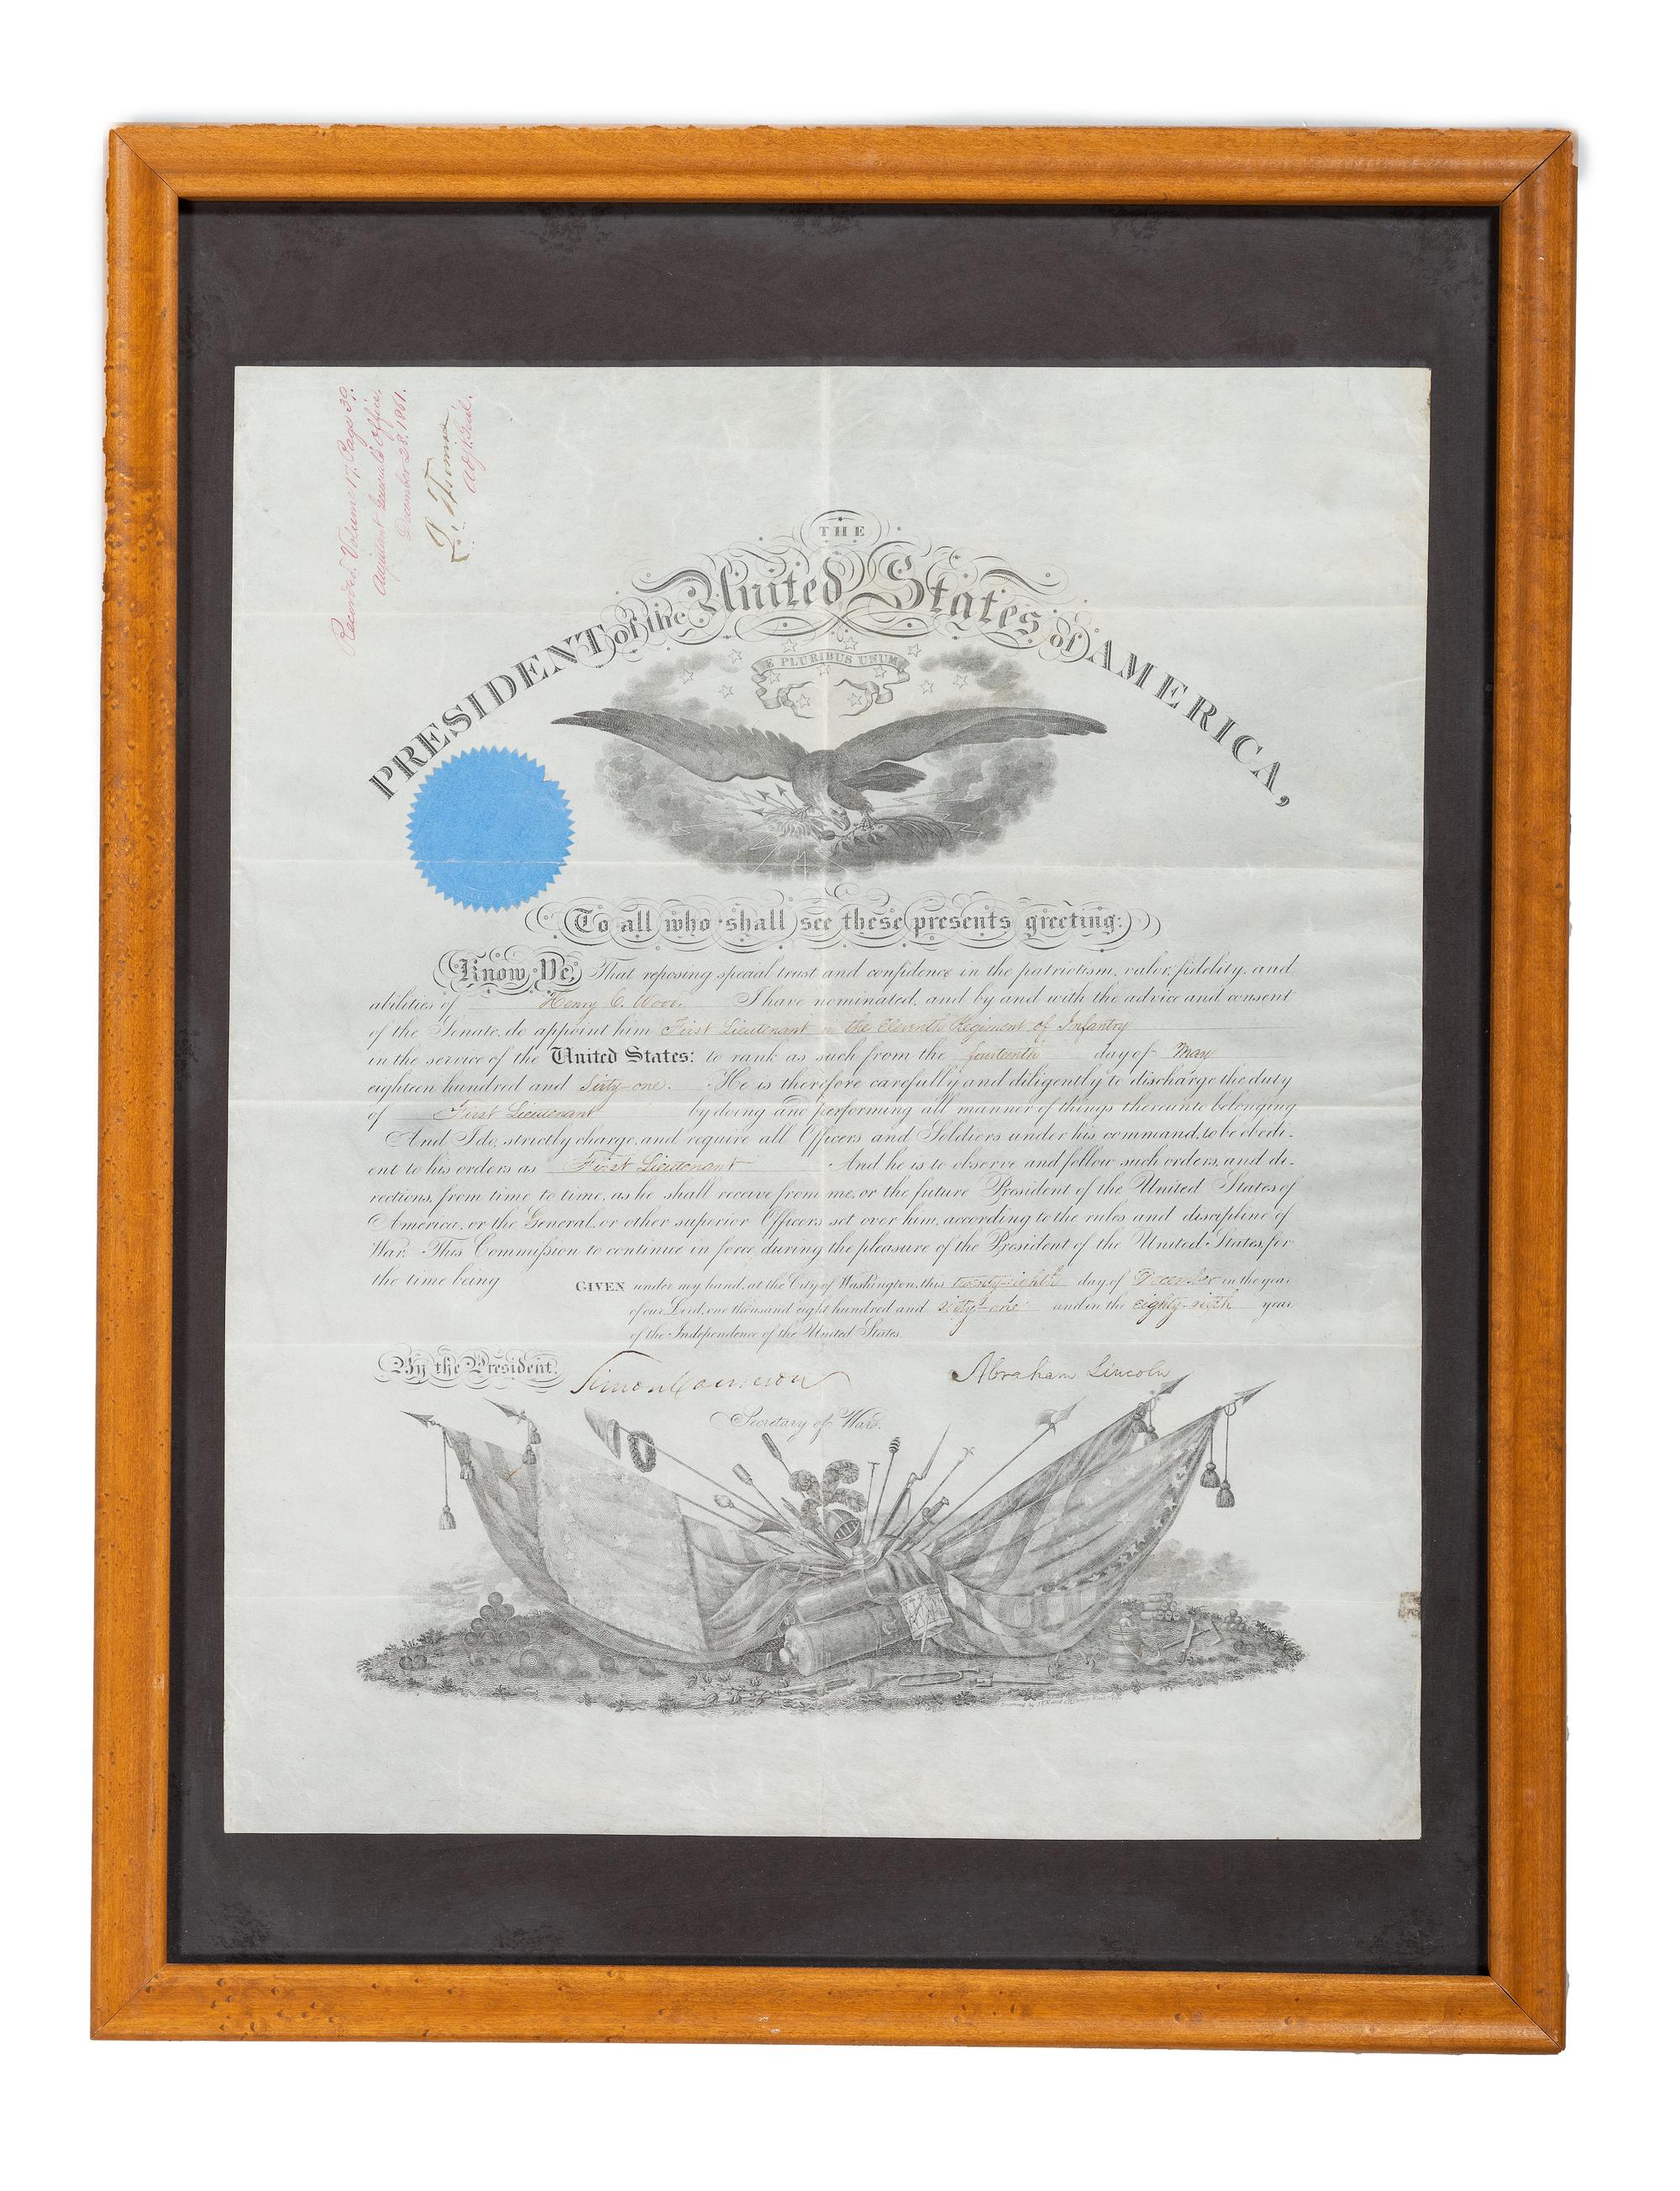 Recorded. Volume 17. Page 39.
Adjutant General's Office,
December 28. 1861.
L. Thomas
Adj. Genl.
THE
PRESIDENT of the United States of AMERICA,
E PLURIBUS UNUM
To all who shall see these presents greeting:
Know Ye, That reposing special trust and confidence in the patriotism, valor, fidelity, and
abilities of Henry C. Wood. I have nominated, and by and with the advice and consent
of the Senate, do appoint him First Lieutenant in the Eleventh Regiment of Infantry
in the service of the United States: to rank as such from the fourteenth day of May
eighteen hundred and sixty-one. He is therefore carefully and diligently to discharge the duty
of First Lieutenant by doing and performing all manner of things thereunto belonging
And I do, strictly charge, and require all Officers and Soldiers under his command, to be obedi-
ent to his orders as First Lieutenant And he is to observe and follow such orders, and di-
rections, from time to time, as he shall receive from me, or the future President of the United States of
America, or the General, or other superior Officers set over him, according to the rules and discipline of
War. This Commission to continue in force during the pleasure of the President of the United States, for
the time being
GIVEN under my hand, at the City of Washington, this twenty-eighth day of December in the year
of our Lord, one thousand eight hundred and sixty-one and in the eighty-sixth year
of the Independence of the United States.
By the President, Simon Cameron Abraham Lincoln
Secretary of War.